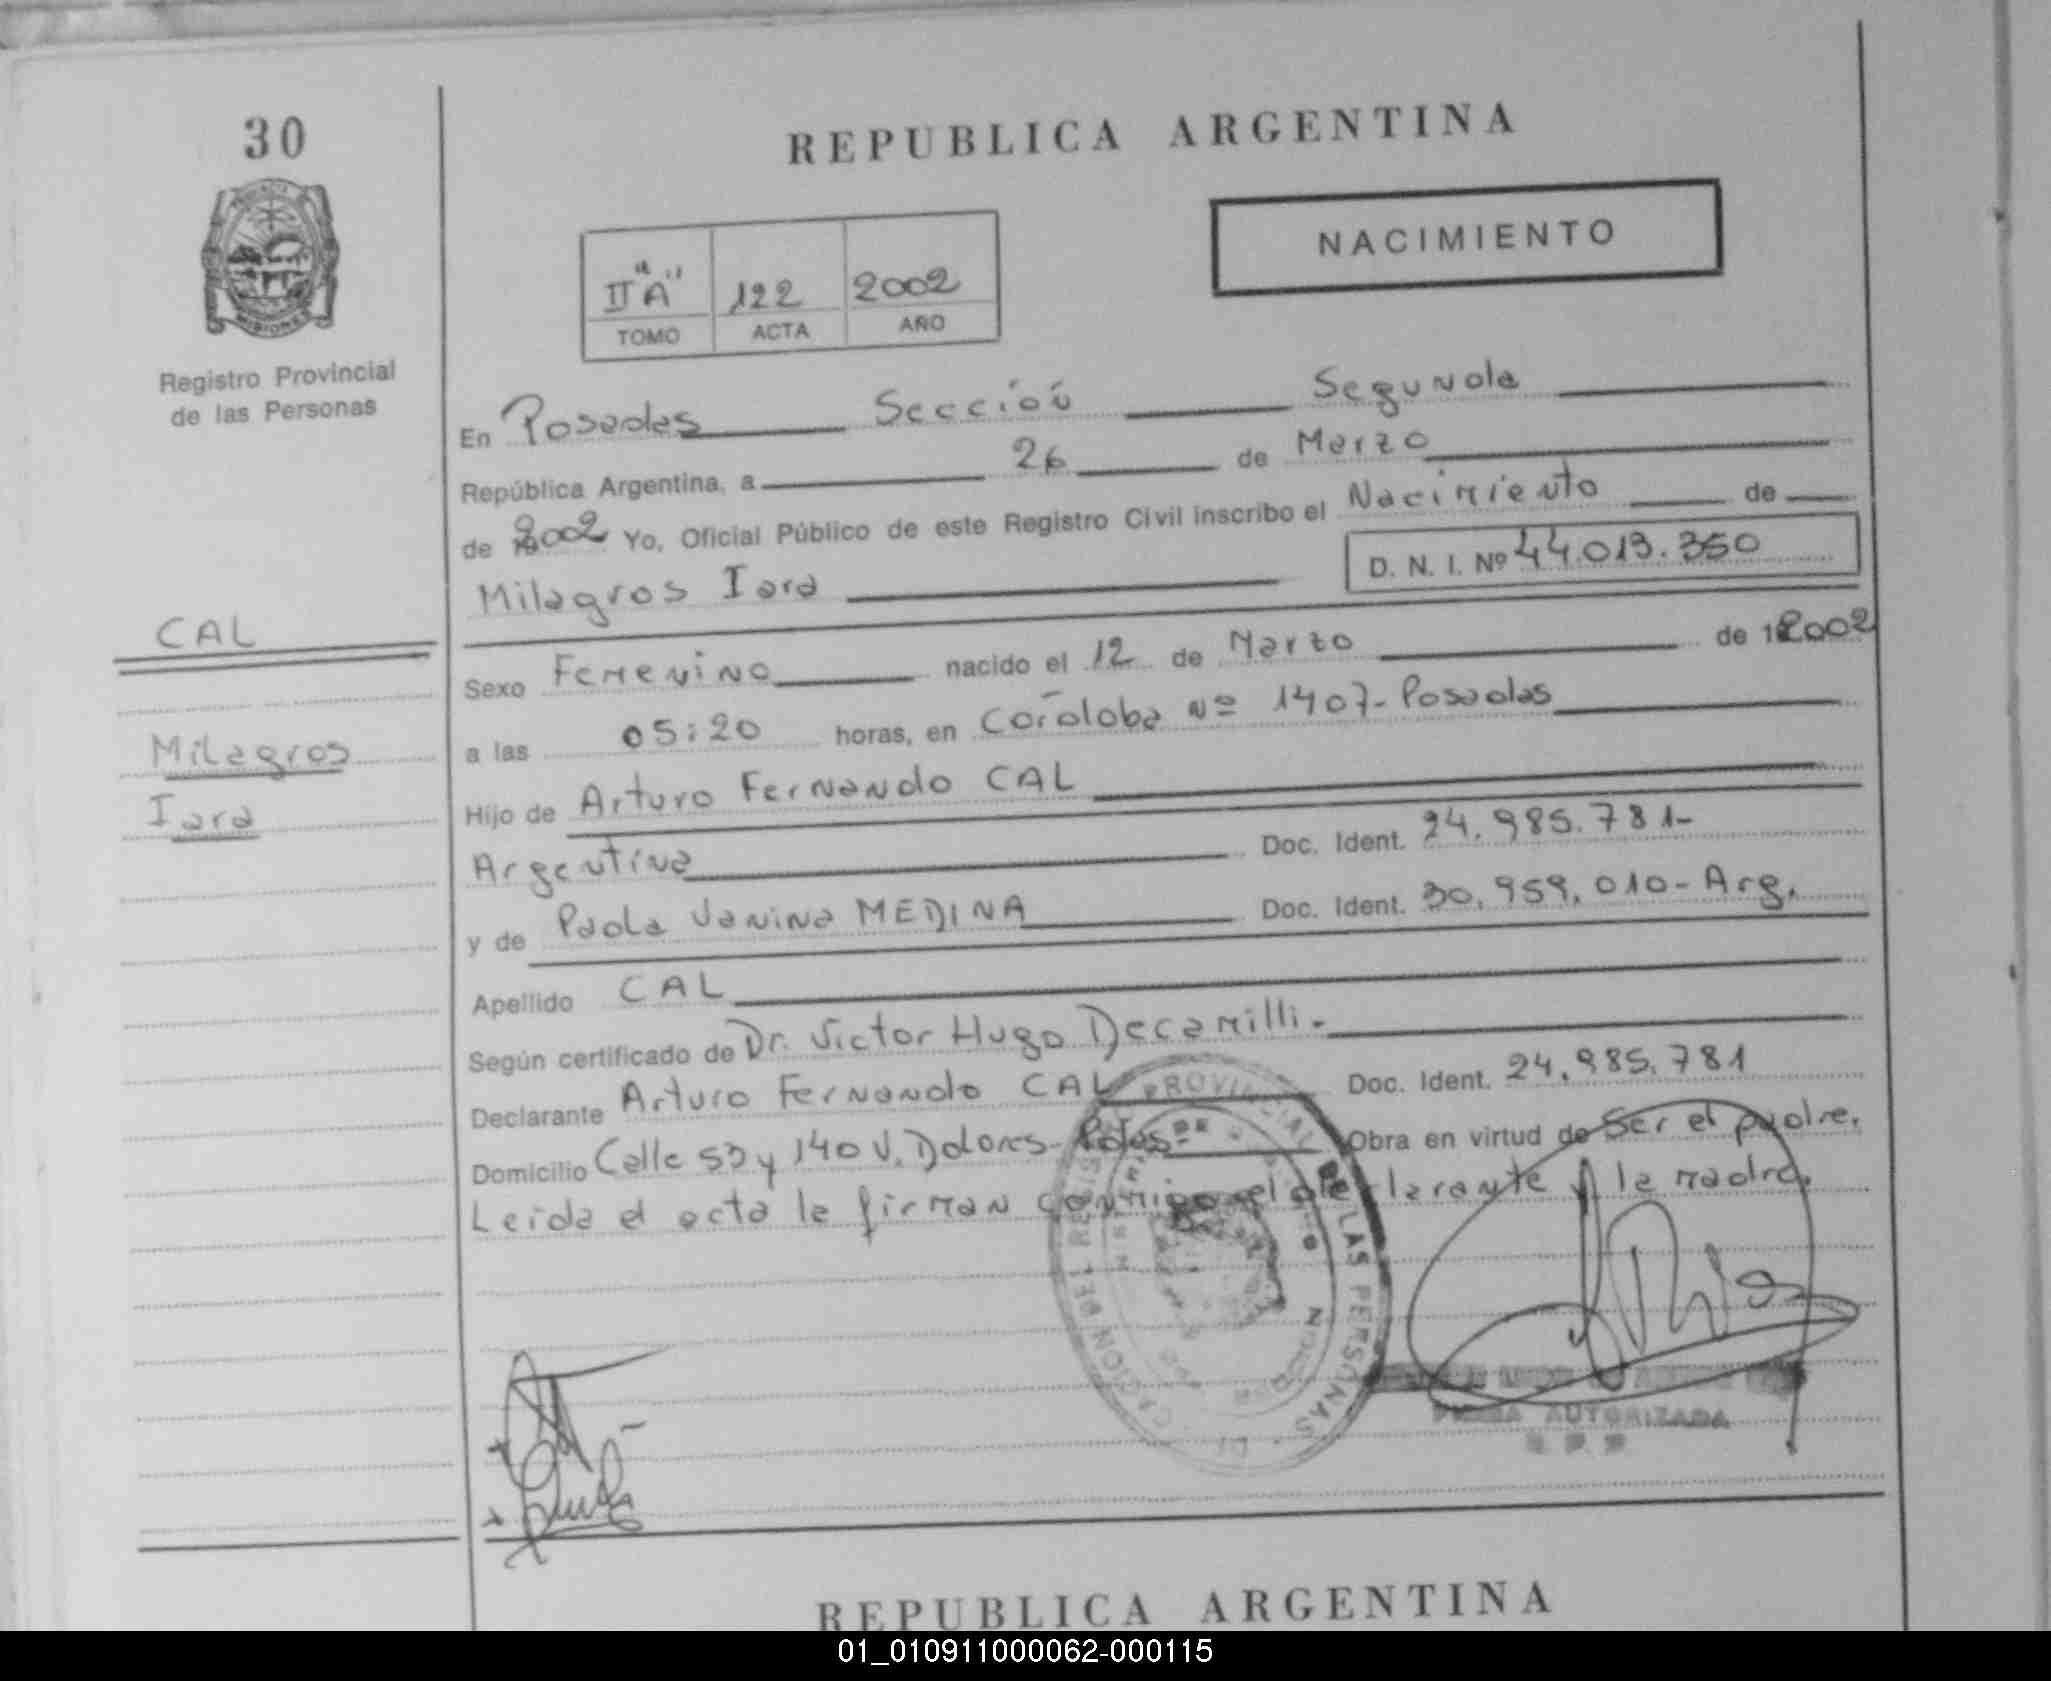 30
REPUBLICA ARGENTINA
NACIMIENTO
II "A" 122 2002
TOMO ACTA AÑO
MISIONES
Registro Provincial
de las Personas
En Posadas Sección Segunda
República Argentina, a 26 de Marzo
de 2002 Yo, Oficial Público de este Registro Civil inscribo el Nacimiento de
Milagros Iara D. N. I. Nº 44.013.350
CAL
Sexo Femenino nacido el 12 de Marzo de 2002
Milagros
a las 05:20 horas, en Córdoba Nº 1407- Posadas
Iara
Hijo de Arturo Fernando CAL
Argentina Doc. Ident. 24.985.781-
y de Paola Vanina MEDINA Doc. Ident. 30.959.010- Arg.
Apellido CAL
Según certificado de Dr. Victor Hugo Decamilli.-
Declarante Arturo Fernando CAL Doc. Ident. 24.985.781
Domicilio Calle 53 y 140 V. Dolores- Pdas.- Obra en virtud de Ser el padre.
Leida el acta la firman conmigo el declarante y la madre.
PROVINCIAL DE LAS PERSONAS
FIRMA AUTORIZADA
REPUBLICA ARGENTINA
01_010911000062-000115